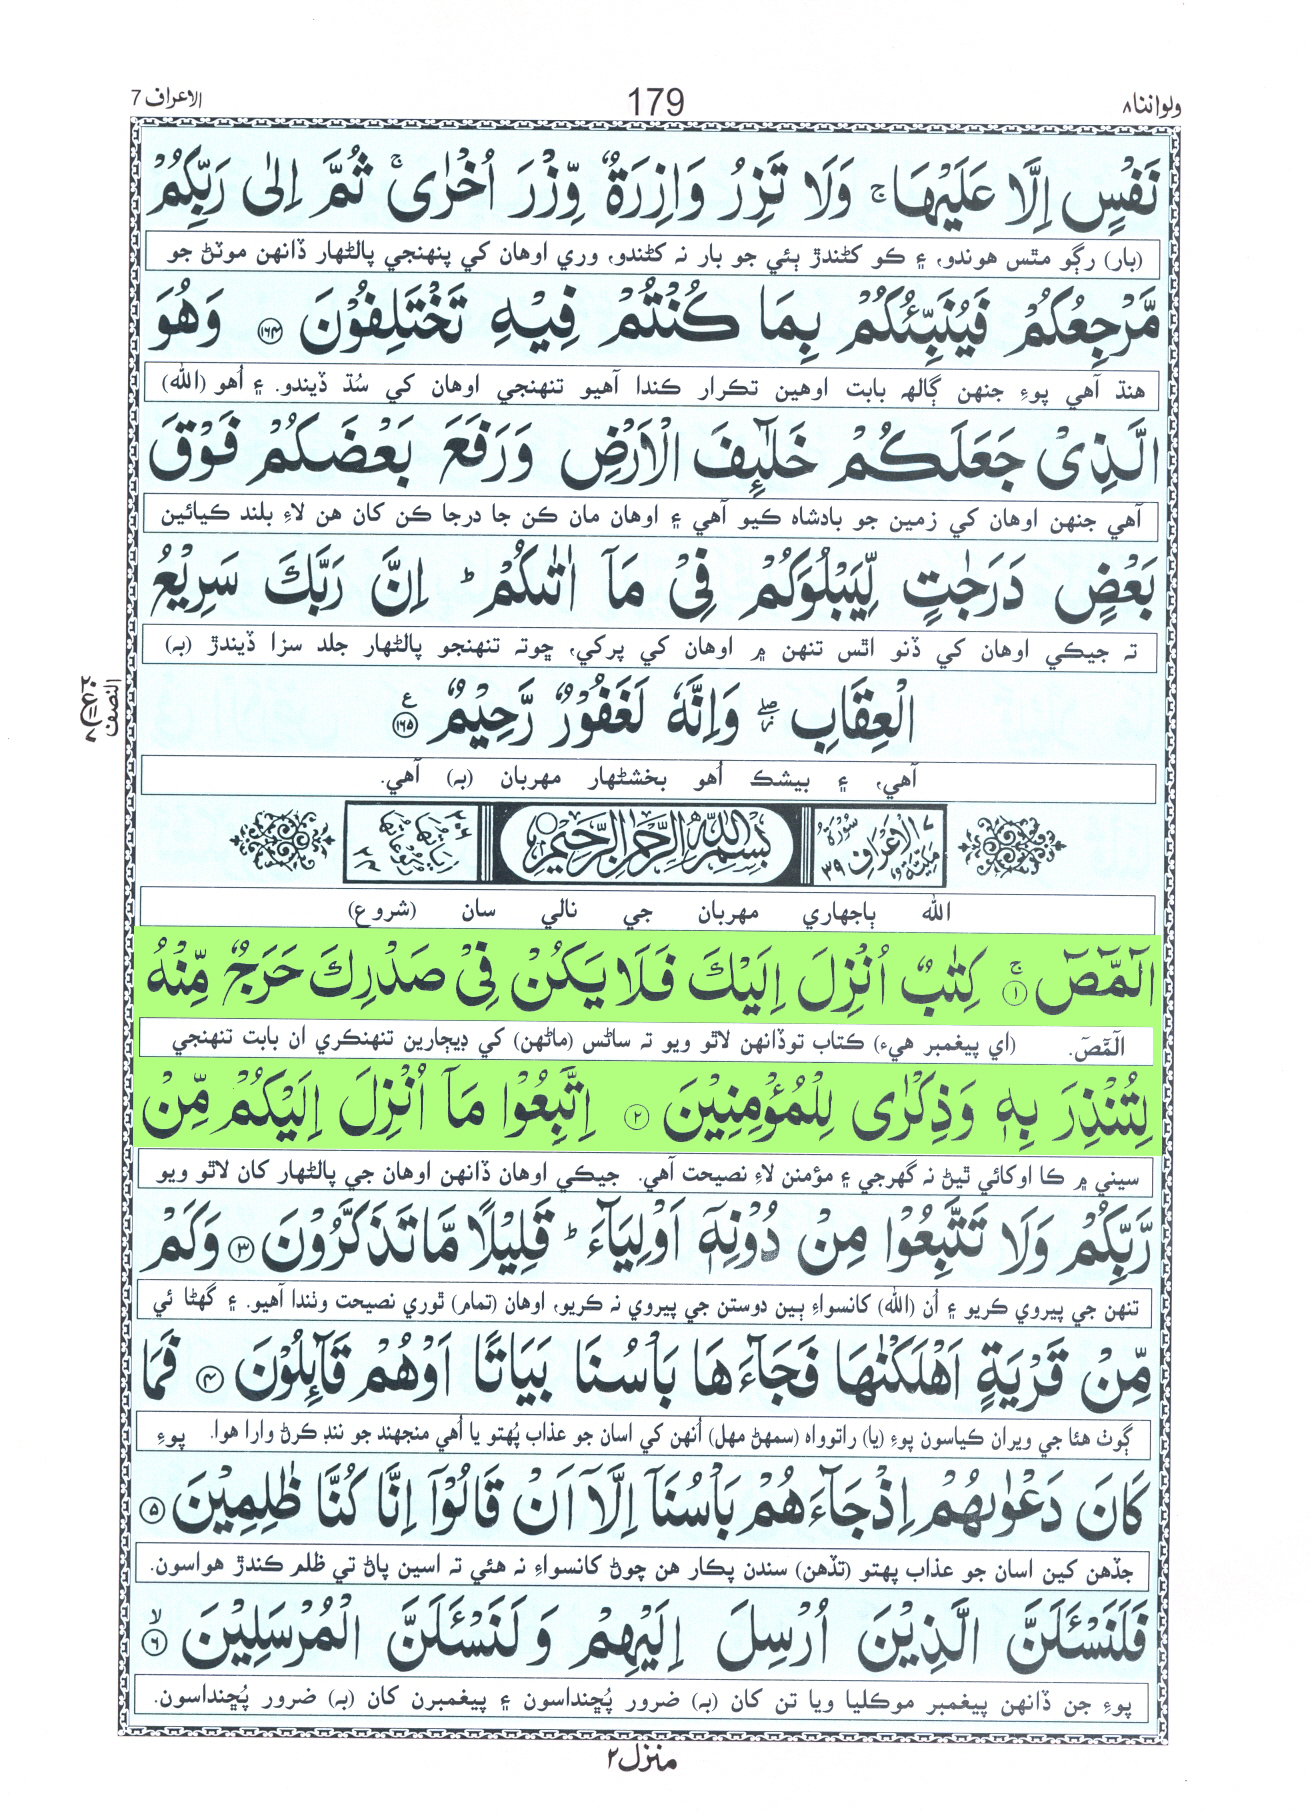 الاعراف 7 179 ولواننا ۸
نَفْسٍ اِلَّا عَلَيْهَا ۚ وَلَا تَزِرُ وَازِرَةٌ وِّزْرَ اُخْرٰى ۚ ثُمَّ اِلٰى رَبِّكُمْ
(بار) رڳو مٿس هوندو، ۽ ڪو کڻندڙ ٻئي جو بار نہ کڻندو، وري اوهان کي پنهنجي پالڻهار ڏانهن موٽڻ جو
مَّرْجِعُكُمْ فَيُنَبِّئُكُمْ بِمَا كُنْتُمْ فِيْهِ تَخْتَلِفُوْنَ ۝۱۶۴ وَهُوَ
هنڌ آهي پوءِ جنهن ڳالھہ بابت اوهين تڪرار ڪندا آهيو تنهنجي اوهان کي سُڌ ڏيندو. ۽ اُهو (الله)
الَّذِىْ جَعَلَكُمْ خَلٰٓئِفَ الْاَرْضِ وَرَفَعَ بَعْضَكُمْ فَوْقَ
آهي جنهن اوهان کي زمين جو بادشاہ ڪيو آهي ۽ اوهان مان ڪن جا درجا ڪن کان هن لاءِ بلند ڪيائين
بَعْضٍ دَرَجٰتٍ لِّيَبْلُوَكُمْ فِىْ مَآ اٰتٰىكُمْ ؕ اِنَّ رَبَّكَ سَرِيْعُ
تہ جيڪي اوهان کي ڏنو اٿس تنهن ۾ اوهان کي پرکي، ڇوتہ تنهنجو پالڻهار جلد سزا ڏيندڙ (بہ)
الْعِقَابِ ۖ وَاِنَّهٗ لَغَفُوْرٌ رَّحِيْمٌ ۝۱۶۵
النصف
آهي، ۽ بيشڪ اُهو بخشڻهار مهربان (بہ) آهي.
۷ سُوْرَةُ الْاَعْرَافِ مَكِّيَّةٌ ۳۹ بِسْمِ اللهِ الرَّحْمٰنِ الرَّحِيْمِ اٰيَاتُهَا ۲۰۶ رُكُوْعَاتُهَا ۲۴
الله ٻاجهاري مهربان جي نالي سان (شروع)
الٓمّٓصٓ ۝۱ ۚ كِتٰبٌ اُنْزِلَ اِلَيْكَ فَلَا يَكُنْ فِىْ صَدْرِكَ حَرَجٌ مِّنْهُ
الٓمّٓصٓ. (اي پيغمبر هيءُ) ڪتاب توڏانهن لاٿو ويو تہ ساڻس (ماڻهن) کي ڊيڄارين تنهنڪري ان بابت تنهنجي
لِتُنْذِرَ بِهٖ وَذِكْرٰى لِلْمُؤْمِنِيْنَ ۝۲ اِتَّبِعُوْا مَآ اُنْزِلَ اِلَيْكُمْ مِّنْ
سيني ۾ ڪا اوکائي ٿيڻ نہ گهرجي ۽ مؤمنن لاءِ نصيحت آهي. جيڪي اوهان ڏانهن اوهان جي پالڻهار کان لاٿو ويو
رَّبِّكُمْ وَلَا تَتَّبِعُوْا مِنْ دُوْنِهٖٓ اَوْلِيَآءَ ؕ قَلِيْلًا مَّا تَذَكَّرُوْنَ ۝۳ وَكَمْ
تنهن جي پيروي ڪريو ۽ اُن (الله) کانسواءِ ٻين دوستن جي پيروي نہ ڪريو، اوهان (تمام) ٿوري نصيحت وٺندا آهيو. ۽ گهڻا ئي
مِّنْ قَرْيَةٍ اَهْلَكْنٰهَا فَجَآءَهَا بَاْسُنَا بَيَاتًا اَوْ هُمْ قَآئِلُوْنَ ۝۴ فَمَا
ڳوٺ هئا جي ويران ڪياسون پوءِ (يا) راتوواہ (سمهڻ مهل) اُنهن کي اسان جو عذاب پُهتو يا اُهي منجهند جو ننڊ ڪرڻ وارا هوا. پوءِ
كَانَ دَعْوٰىهُمْ اِذْ جَآءَهُمْ بَاْسُنَآ اِلَّآ اَنْ قَالُوْٓا اِنَّا كُنَّا ظٰلِمِيْنَ ۝۵
جڏهن کين اسان جو عذاب پهتو (تڏهن) سندن پڪار هن چوڻ کانسواءِ نہ هئي تہ اسين پاڻ تي ظلم ڪندڙ هواسون.
فَلَنَسْـَٔلَنَّ الَّذِيْنَ اُرْسِلَ اِلَيْهِمْ وَلَنَسْـَٔلَنَّ الْمُرْسَلِيْنَ ۝۶ ۙ
پوءِ جن ڏانهن پيغمبر موڪليا ويا تن کان (بہ) ضرور پُڇنداسون ۽ پيغمبرن کان (بہ) ضرور پُڇنداسون.
منزل ۲